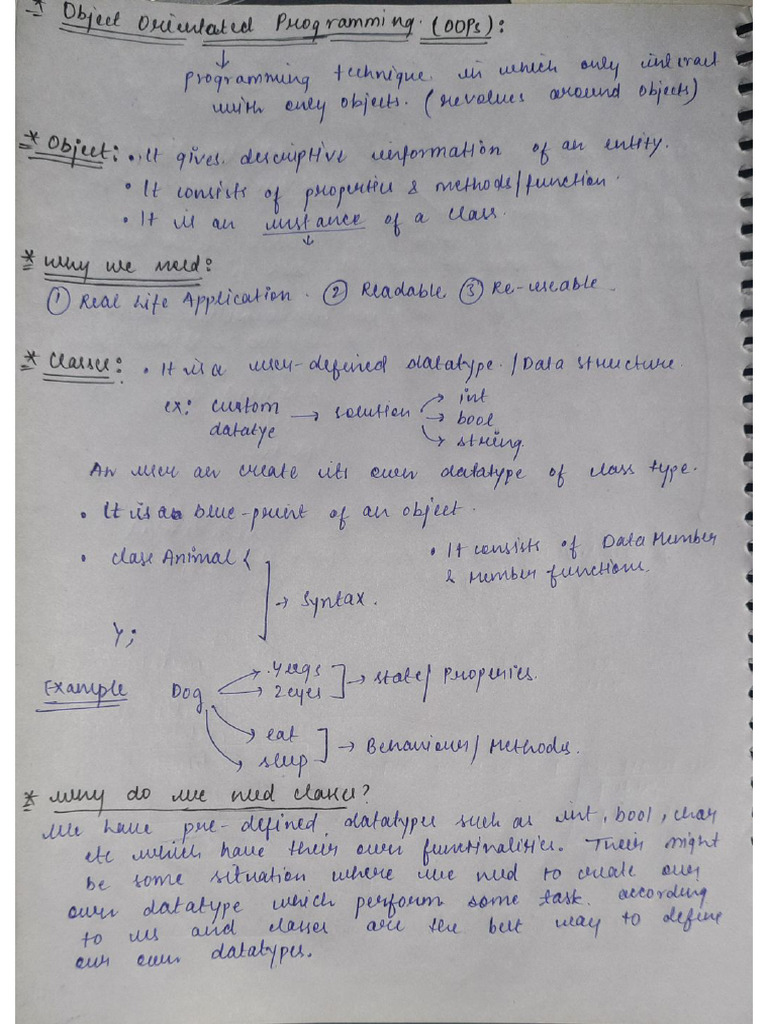 * Object Orientated Programming (OOPs):
↓
programming technique in which only interact
with only objects. (revolves around objects)
* Object: • It gives descriptive information of an entity.
• It consists of properties & methods/function.
• It is an instance of a class.
↓
* Why we need:
① Real Life Application. ② Readable ③ Re-useable.
* Classes: • It is a user-defined datatype./Data structure.
ex: custom datatye → solution → int
→ bool
→ string
An user an create its own datatype of class type.
• It is a blue-print of an object.
• class Animal {
};
→ Syntax.
• It consists of Data Member
& Member functions.
Example Dog → 4 legs
→ 2 eyes
→ State/Properties.
→ eat
→ sleep
→ Behaviour/Methods.
* Why do we need classes?
We have pre-defined datatypes such as int, bool, char
etc which have their own functinalities. Their might
be some situation where we need to create our
own datatype which perform some task according
to us and classes are the best way to define
our own datatypes.